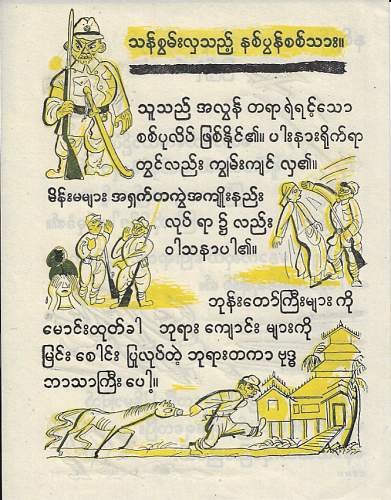 သန်စွမ်းလှသည့် နစ်ပွန်စစ်သား။
သူသည် အလွန် တရာ ရဲရင့်သော
စစ်ပုလိပ် ဖြစ်နိုင်၏။ ပါးနားရိုက်ရာ
တွင်လည်း ကျွမ်းကျင် လှ၏။
မိန်းမများ အရှက်တကွဲအကျိုးနည်း
လုပ် ရာ ၌ လည်း
ဝါသနာပါ၏။
ဘုန်းတော်ကြီးများ ကို
မောင်းထုတ်ခါ ဘုရား ကျောင်း များကို
မြင်း စောင်း ပြုလုပ်တဲ့ ဘုရားတကာ ဗုဒ္ဓ
ဘာသာကြီး ပေါ့။